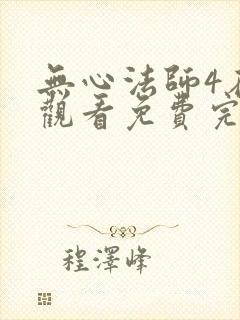 無心法師4
觀看免費完
程澤峰